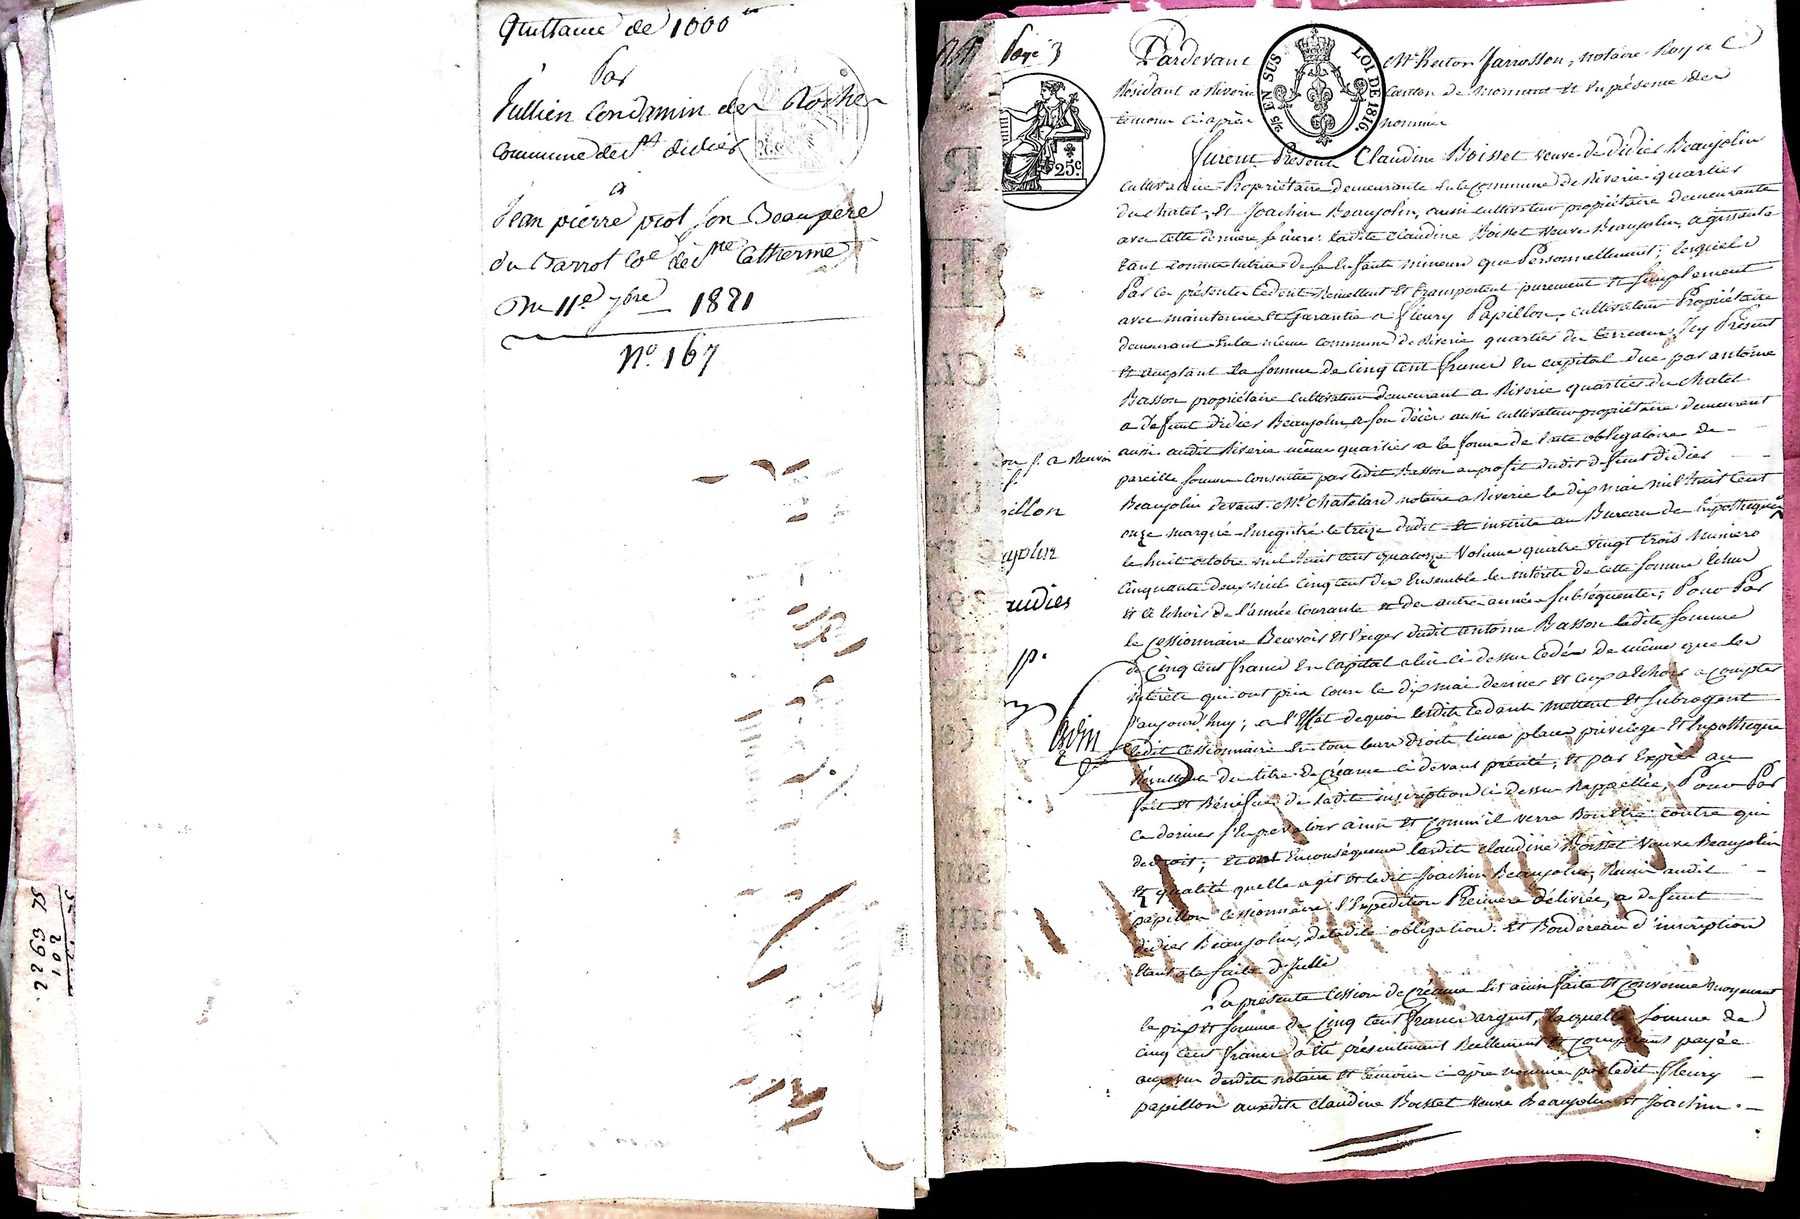 Quittance de 1000 ₶
par
Jullien Condamin des Roches
commune de St didier
a
Jean pierre piot son Beaupère
du Barrot Coe de Ste Catherine
Du 11e 7bre 1821
No. 167
201
6922
Pardevant Me Rector Jarrosson, notaire Royal
Résidant a Riverie Canton de Mornant Et En présence des
témoins ci après nommés
2/5 EN SUS LOI DE 1816.
25c
Furent Présents Claudine Boisset veuve de Didier Beaujolin
cultivatrice Propriétaire demeurante Sur la Commune de Riverie quartier
du chatel, Et Joachim Beaujolin, aussi cultivateur propriétaire demeurante
avec cette derniere sa mere: ladite Claudine Boisset veuve Beaujolin, agissante
tant comme tutrice de ses Enfants mineurs que Personnellement; lesquels
Par ces présentes cedent Remettent Et transportent purement Et simplement
avec maintenue Et Garantie a Fleury Papillon, cultivateur Propriétaire
demeurant Sur la même commune de Riverie quartier du terreaux, Icy Présent
Et aceptant la somme de Cinq Cent francs En capital due par antoine
Basson propriétaire cultivateur demeurant a Riverie quartier du chatel
a defunt didier Beaujolin, a son décès aussi cultivateur propriétaire demeurant
aussi audit Riverie même quartier a la forme de l'acte obligatoire de
pareille somme Consentie par ledit Basson au profit dudit defunt didier
Beaujolin devant Me Chatelard notaire a Riverie le dix mai mil huit Cent
onze marqué Enregistré le treize dudit Et inscrite au Bureau des hypotheques
le huit octobre mil huit cent quatorze Volume quatre vingt trois Numero
Cinquante deux mil cinq cent dix Ensemble les intérêts de cette somme Echus
Et a Echoir de l'année courante Et des autres années subséquentes; Pour Par
le Cessionnaire Recevoir Et Exiger dudit antoine Basson ladite somme
de Cinq Cent francs En capital a lui ci dessus cedée de même que les
intérêts qui ont pris cours le dix mai dernier Et ceux a Echoir a compter
d'aujourd'huy; a l'Effet de quoi lesdits cedants mettent Et subrogent
ledit cessionnaire En tous leurs droits lieux place privilege Et hypotheque
Résultants du titre de Créance ci devant prénté, Et par Exprès au
fait Et Bénéfice de ladite inscription ci dessus Rappellée, Pour Par
ce dernier s'En prevaloir ainsi Et Comm'il verra Bon Etre contre qui
de droit; Et ont En conséquence lesdits claudine Boisset veuve Beaujolin
Et qualité quelle agit Et ledit Joachim Beaujolin, Remis audit
papillon Cessionnaire l'Expedition Premiere délivrée, a defunt
didier Beaujolin, de ladite obligation. Et Bordereau d'inscription
Etant a la suite d'Icelle
La présente Cession de Créance Est ainsi faite Et Convenue moyenant
le prix Et somme de Cinq Cent francs argent, laquelle somme de
cinq cent francs a été présentement Réellement Et comptant payée
aux vu desdits notaire Et témoins ci après nommés par ledit Fleury
papillon auxdits Claudine Boisset veuve Beaujolin Et Joachim